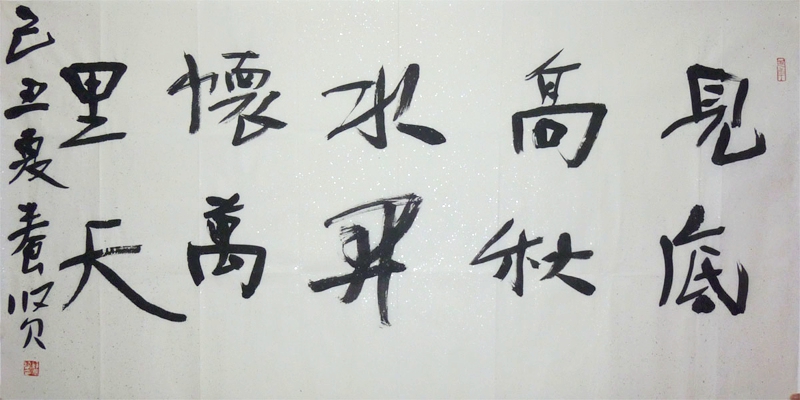 見底
高秋
水開
懷萬
里天
己丑夏贤